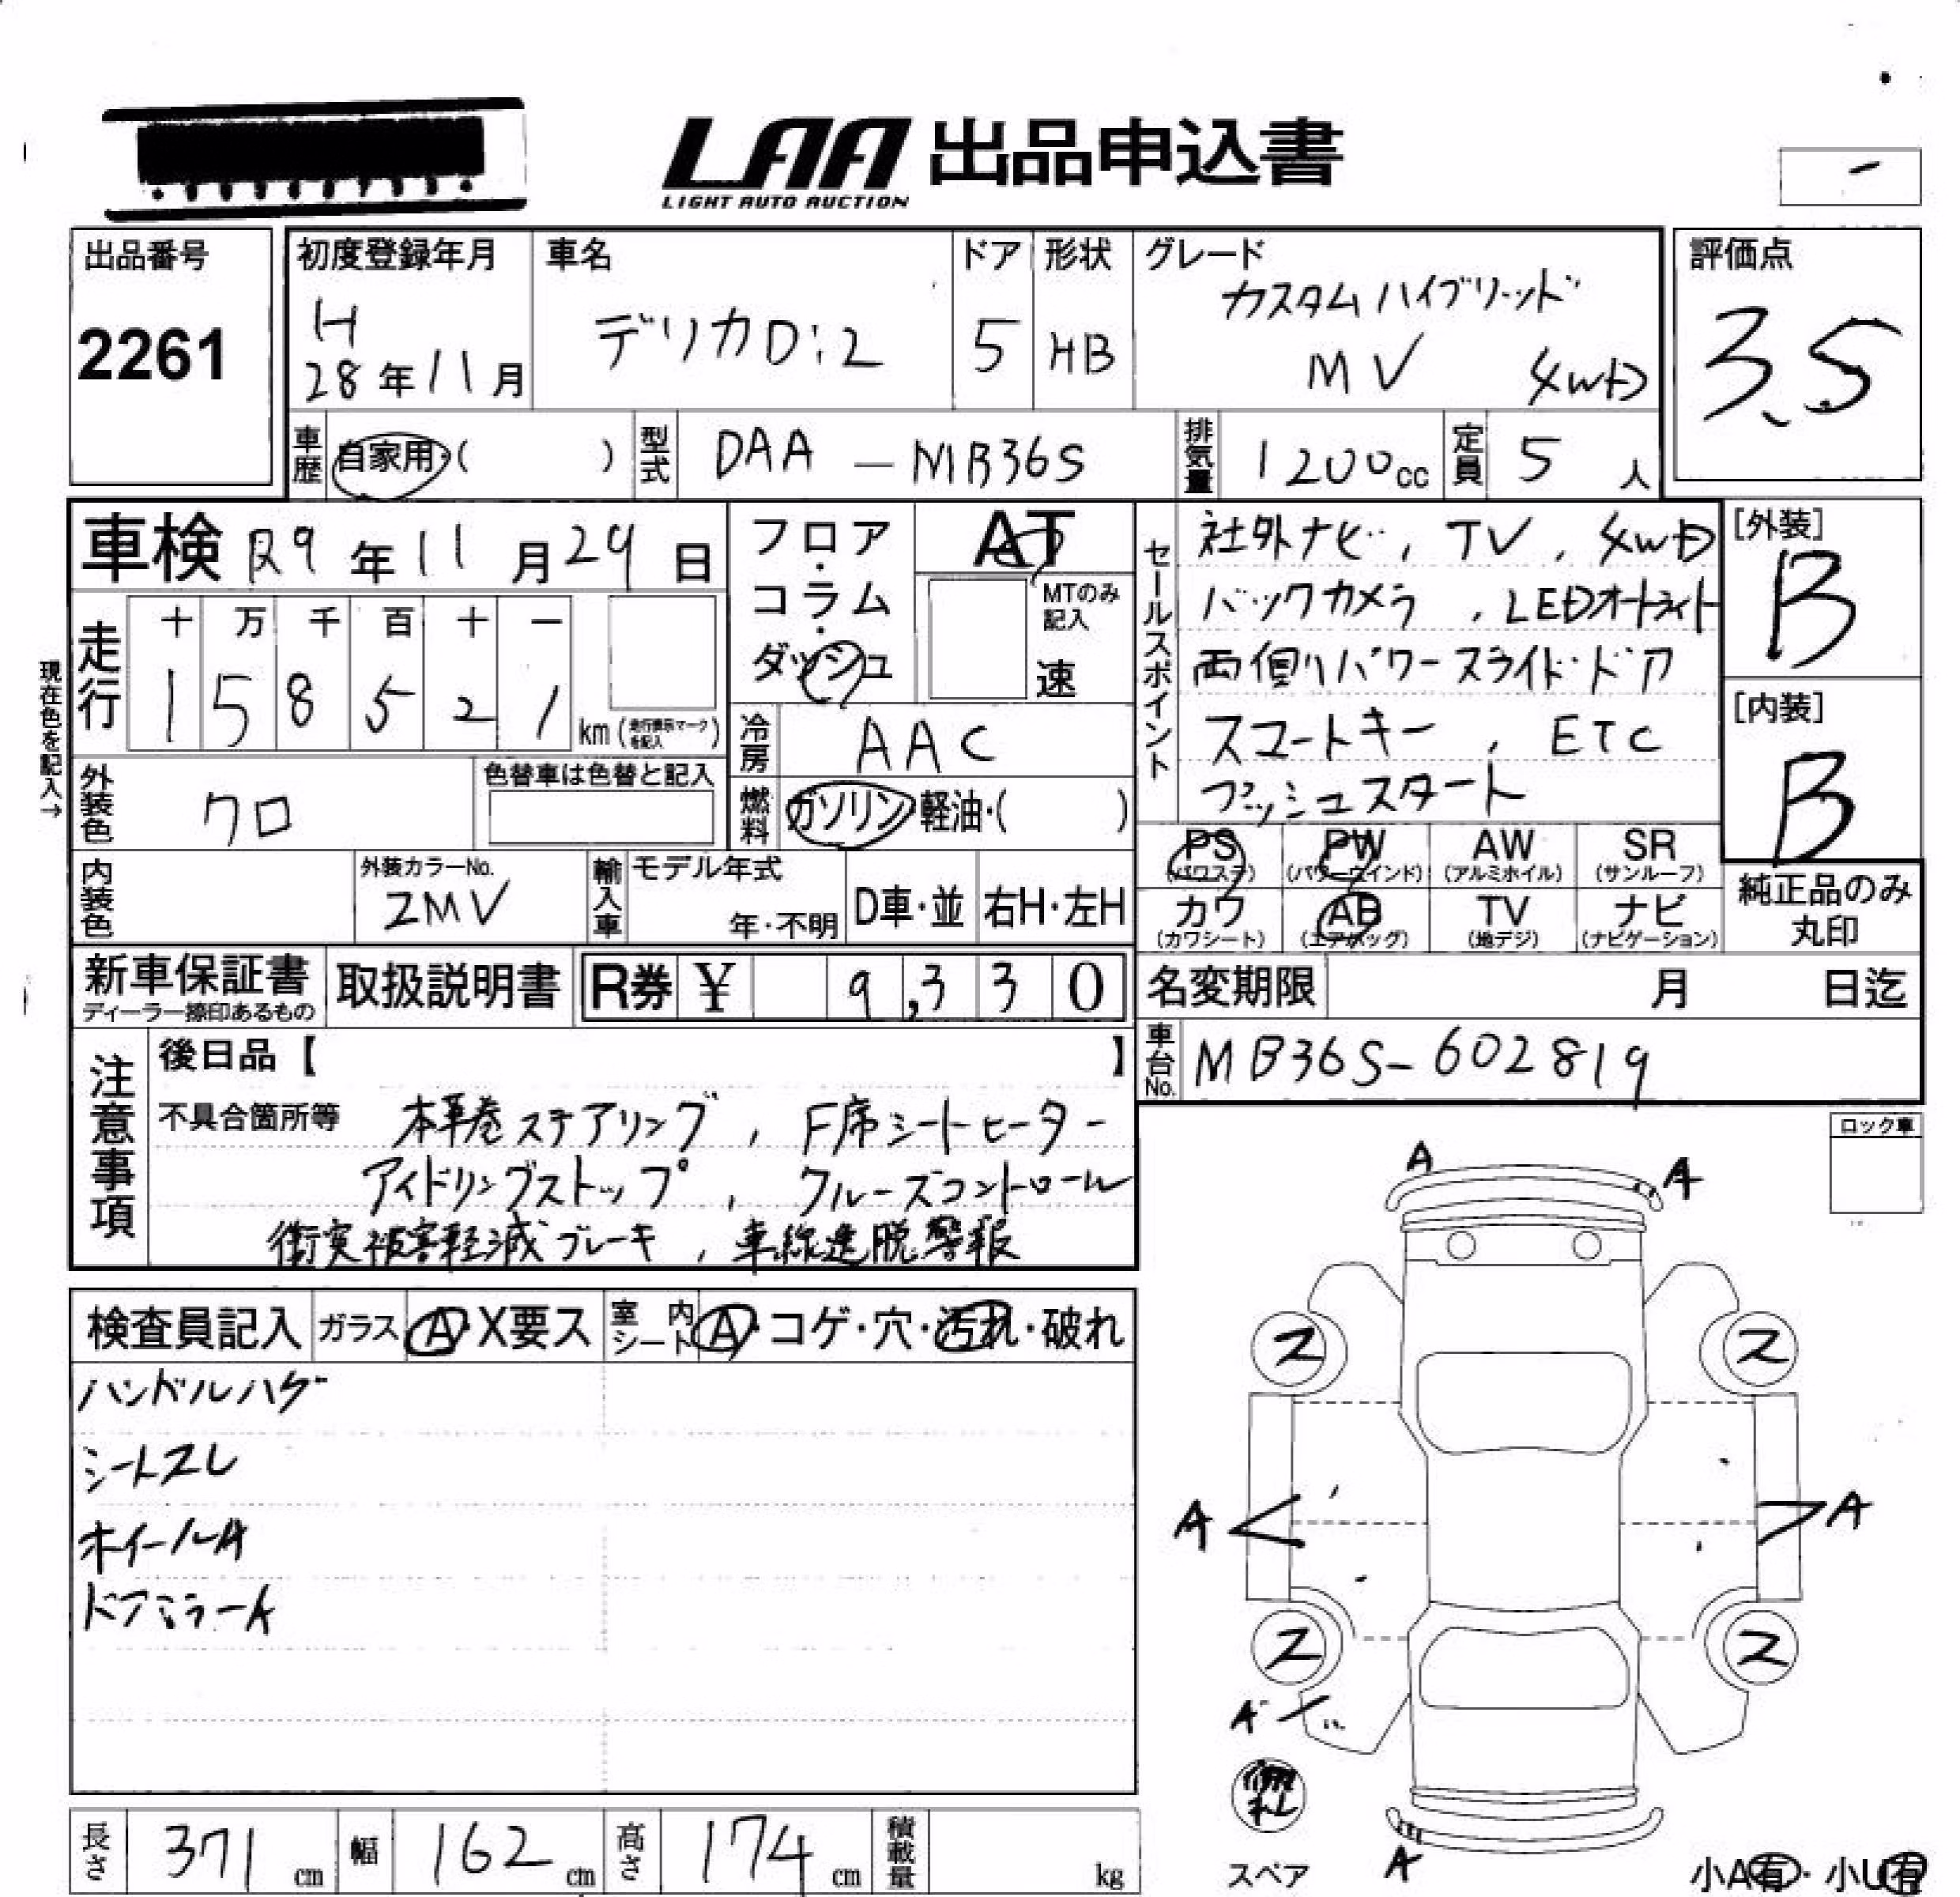 LAA 出品申込書
LIGHT AUTO AUCTION
出品番号
2261
初度登録年月
H
28年11月
車名
デリカD:2
ドア
5
形状
HB
グレード
カスタムハイブリッド
MV 4WD
評価点
3.5
車歴 自家用・( )
型式 DAA-MB36S
排気量 1200cc
定員 5人
車検 R9年11月29日
フロア・
コラム・
ダッシュ
AT
MTのみ
記入
速
現在色を記入→
走行
十 万 千 百 十 一
1 5 8 5 2 1 km
冷房 AAC
外装色 クロ
色替車は色替と記入
燃料 ガソリン・軽油・( )
内装色
外装カラーNo.
ZMV
輸入車
モデル年式
年・不明
D車・並
右H・左H
新車保証書
取扱説明書
R券 ¥ 9,330
セールスポイント
社外ナビ, TV, 4WD
バックカメラ, LEDオートライト
両側パワースライドドア
スマートキー, ETC
プッシュスタート
[外装]
B
[内装]
B
PS PW AW SR
(パワステ) (パワーウインド) (アルミホイル) (サンルーフ)
カワ AB TV ナビ
(カワシート) (エアバッグ) (地デジ) (ナビゲーション)
純正品のみ
丸印
名変期限 月 日迄
車台No. MB36S-602819
注意事項
後日品【 】
不具合箇所等 本革巻ステアリング, F席シートヒーター
アイドリングストップ, クルーズコントロール
衝突被害軽減ブレーキ, 車線逸脱警報
ロック車
検査員記入 ガラス A・X要ス 室内シート A・コゲ・穴・汚れ・破れ
ハンドルハゲ
シートスレ
ホイールA
ドアミラーA
A A
ス ス
A A
ス ス
A
スペア
A
小A有・小U有
長さ 371cm 幅 162cm 高さ 174cm 積載量 kg